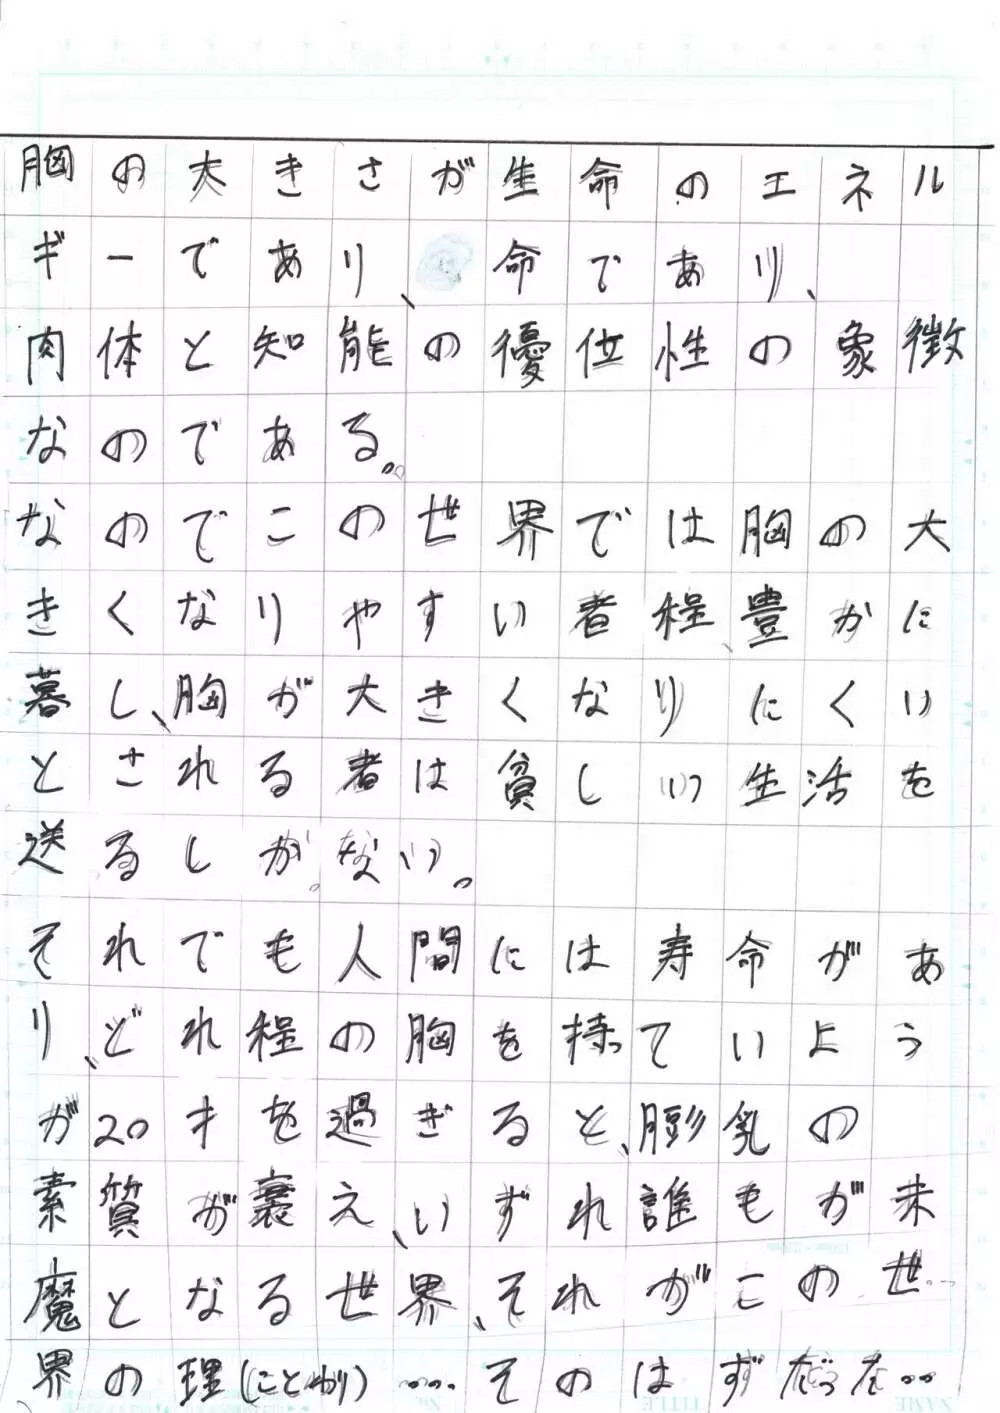 胸の大きさが生命のエネル
ギーであり、命であり、
肉体と知能の優位性の象徴
なのである。
なのでこの世界では胸の大
きくなりやすい者程、豊かに
暮し、胸が大きくなりにくい
とされる者は貧しい生活を
送るしかない。
それでも人間には寿命があ
り、どれ程の胸を持っていよう
が20才を過ぎると、膨乳の
素質が衰え、いずれ誰もが未
魔となる世界、それがこの世
界の理(ことわり)……そのはずだった……